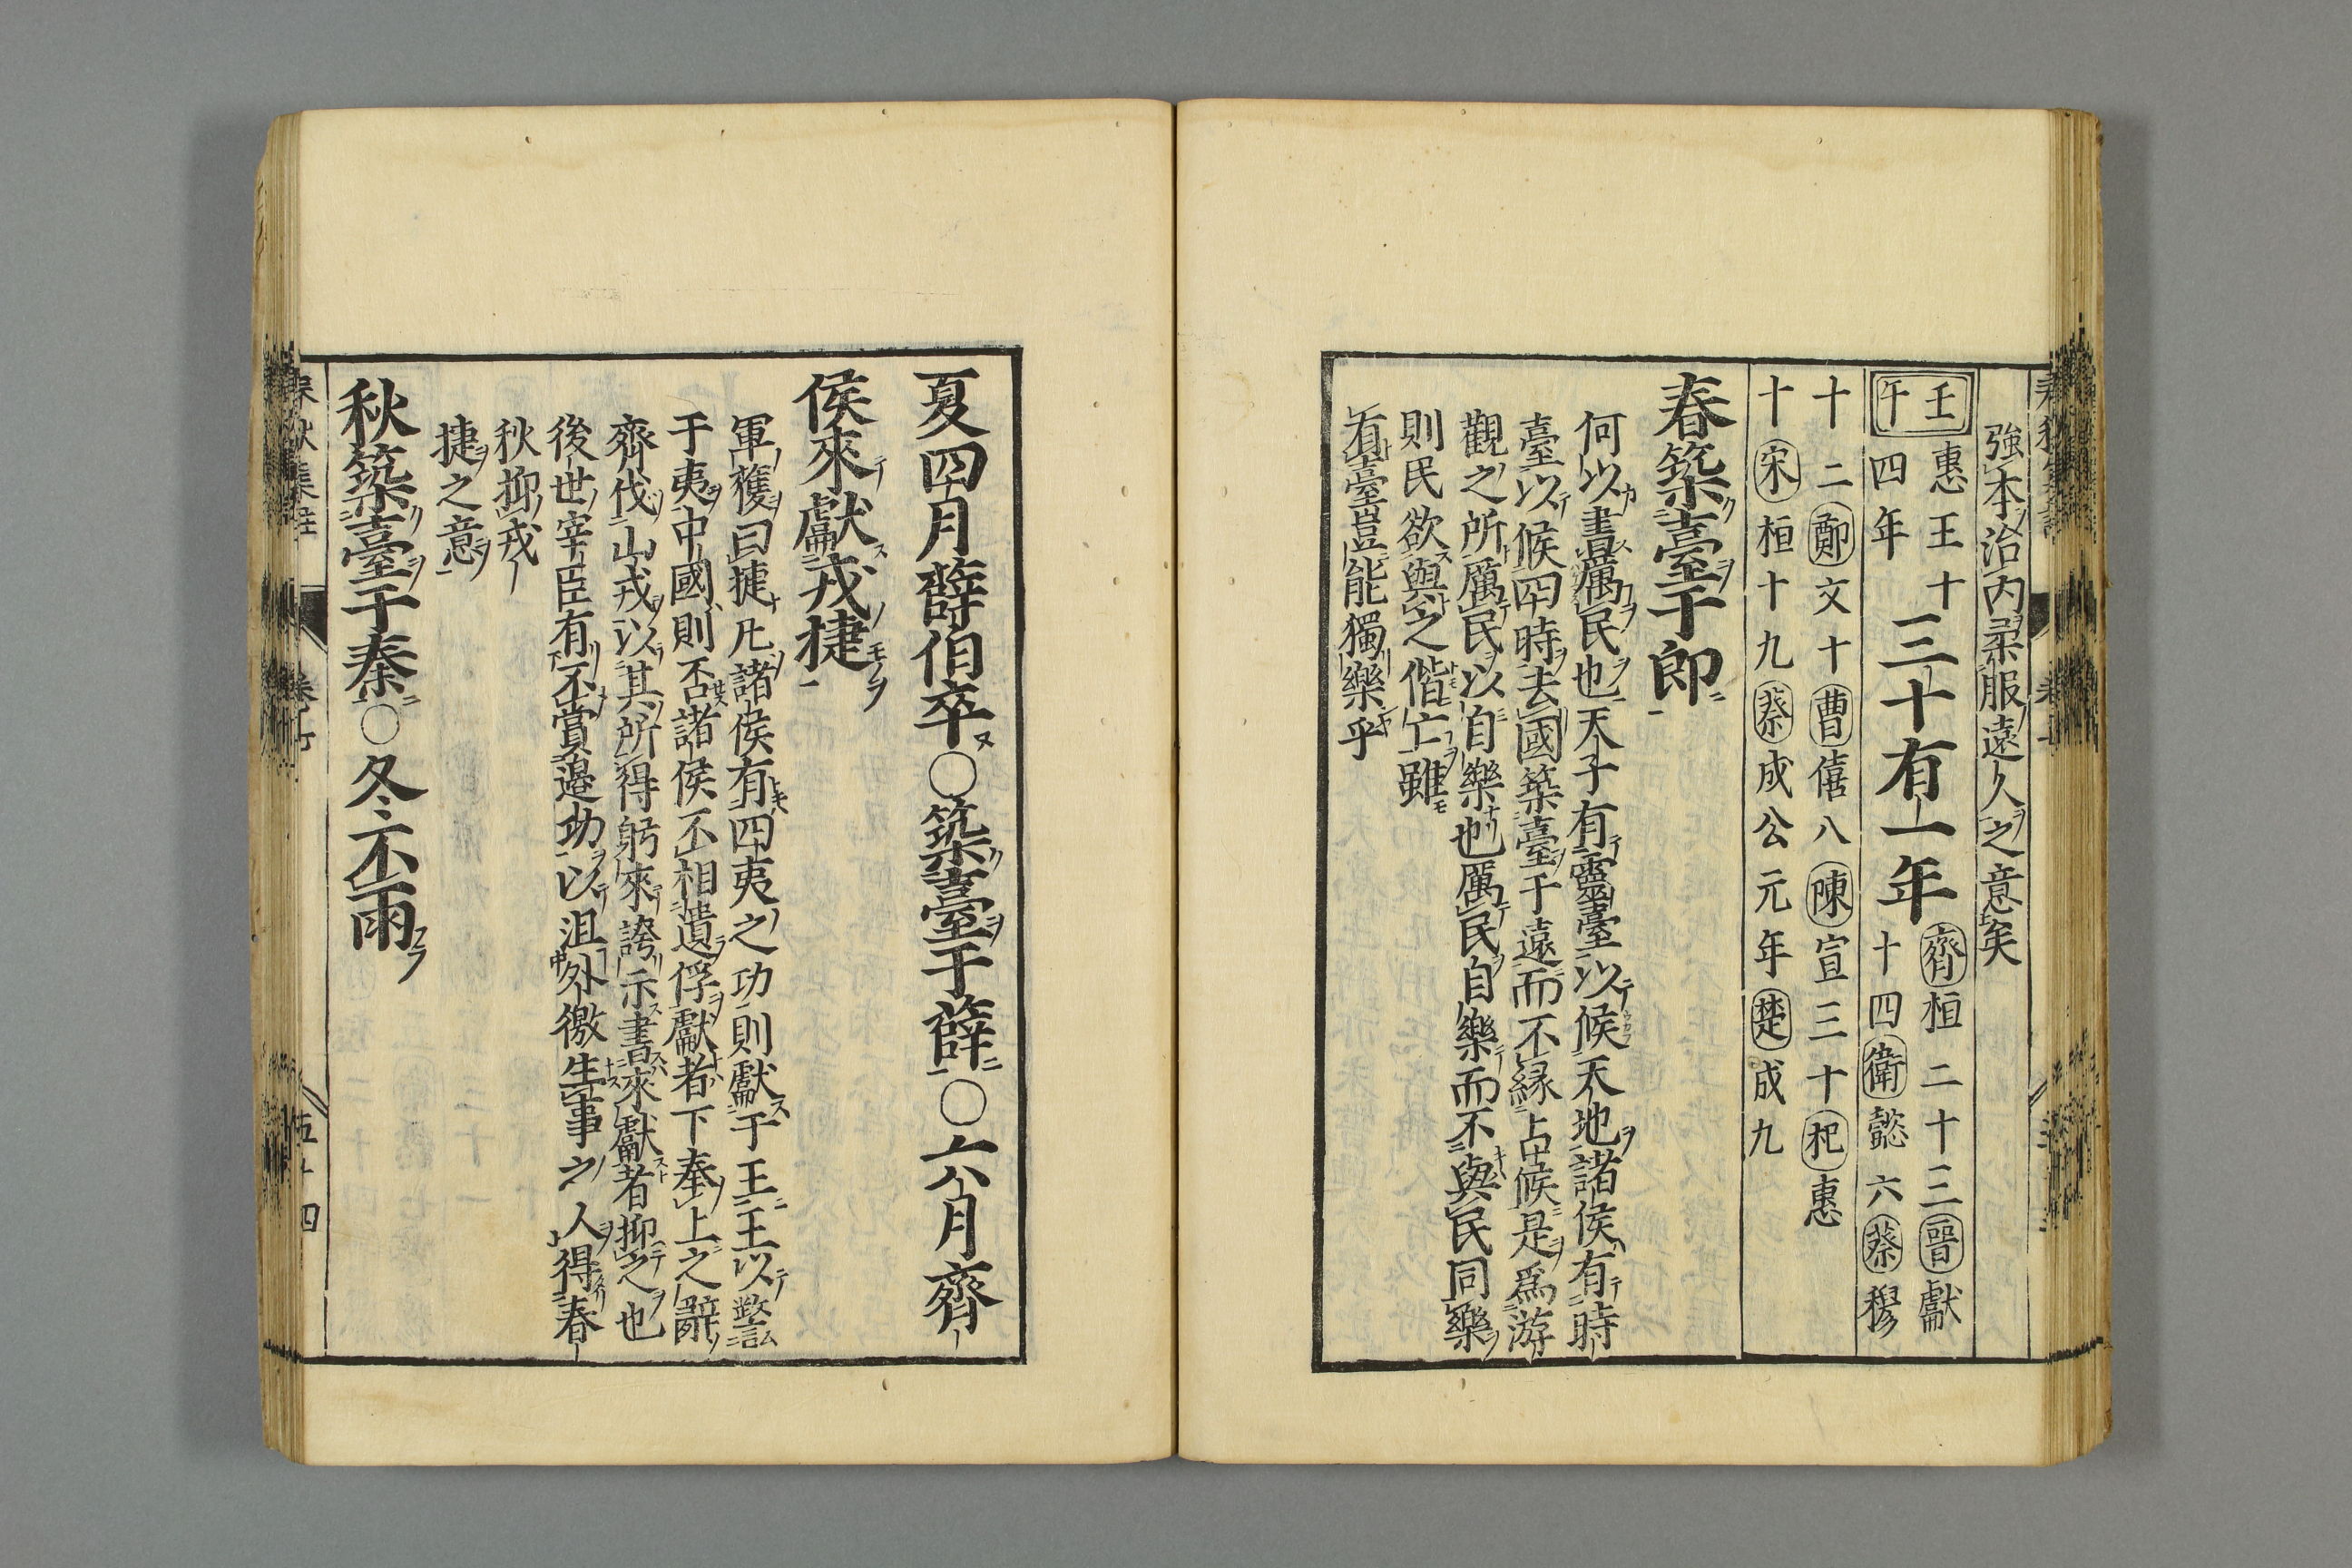 強本治内柔服遠人之意矣
壬午
惠王十
四年
三十有一年
齊桓二十三晉獻
十四衛懿六蔡穆
十二鄭文十曹僖八陳宣三十杞惠
十宋桓十九蔡成公元年楚成九
春築臺于郎
何以書厲民也天子有靈臺以候天地諸侯有時
臺以候四時去國築臺于遠而不緣占候是爲游
觀之所厲民以自樂也厲民自樂而不與民同樂
則民欲與之偕亡雖
有臺豈能獨樂乎
夏四月薛伯卒○築臺于薛○六月齊
侯來獻戎捷
軍獲曰捷凡諸侯有四夷之功則獻于王王以警
于夷中國則否諸侯不相遺俘獻者下奉上之辭
齊伐山戎以其所得躬來誇示書來獻者抑之也
後世宰臣有不賞邉功以沮外徼生事之人得春
秋抑戎
捷之意
秋築臺于秦○冬不雨
春秋集註
五十四